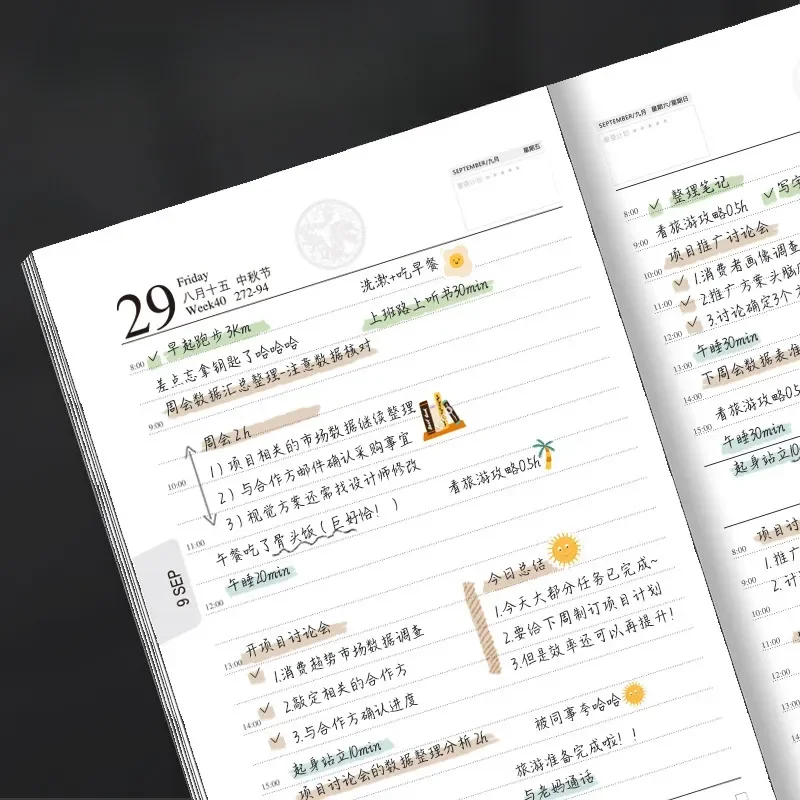 SEPTEMBER/九月 星期五
29
Friday
八月十五 中秋节
Week40 272-94
洗漱+吃早餐
8:00 早起跑步3km
上班路上听书30min
差点忘拿钥匙了哈哈哈
9:00 周会数据汇总整理-注意数据核对
周会2h
1)项目相关的市场数据继续整理
10:00 2)与合作方邮件确认采购事宜
3)视觉方案还需找设计师修改
看旅游攻略0.5h
11:00 午餐吃了骨头饭(巨好恰!)
午睡20min
12:00
9 SEP
今日总结
1.今天大部分任务已完成~
2.要给下周制订项目计划
3.但是效率还可以再提升!
开项目讨论会
13:00 1.消费趋势市场数据调查
2.敲定相关的合作方
14:00 3.与合作方确认进度
被同事夸哈哈
起身站立10min
旅游准备完成啦!!
15:00 项目讨论会的数据整理分析2h
与老妈通话
SEPTEMBER/九月 星期六/星期日
8:00 整理笔记
看旅游攻略0.5h
9:00 项目推广讨论会
10:00 1.消费者画像调查
11:00 2.推广方案头脑
12:00 3.讨论确定3个
午睡30min
13:00 下周会数据表准
14:00 看旅游攻略0.5
15:00 午睡30min
起身站立10
项目讨
8:00 1.推广
9:00 2.计
10:00
11:00
12:00
13:00